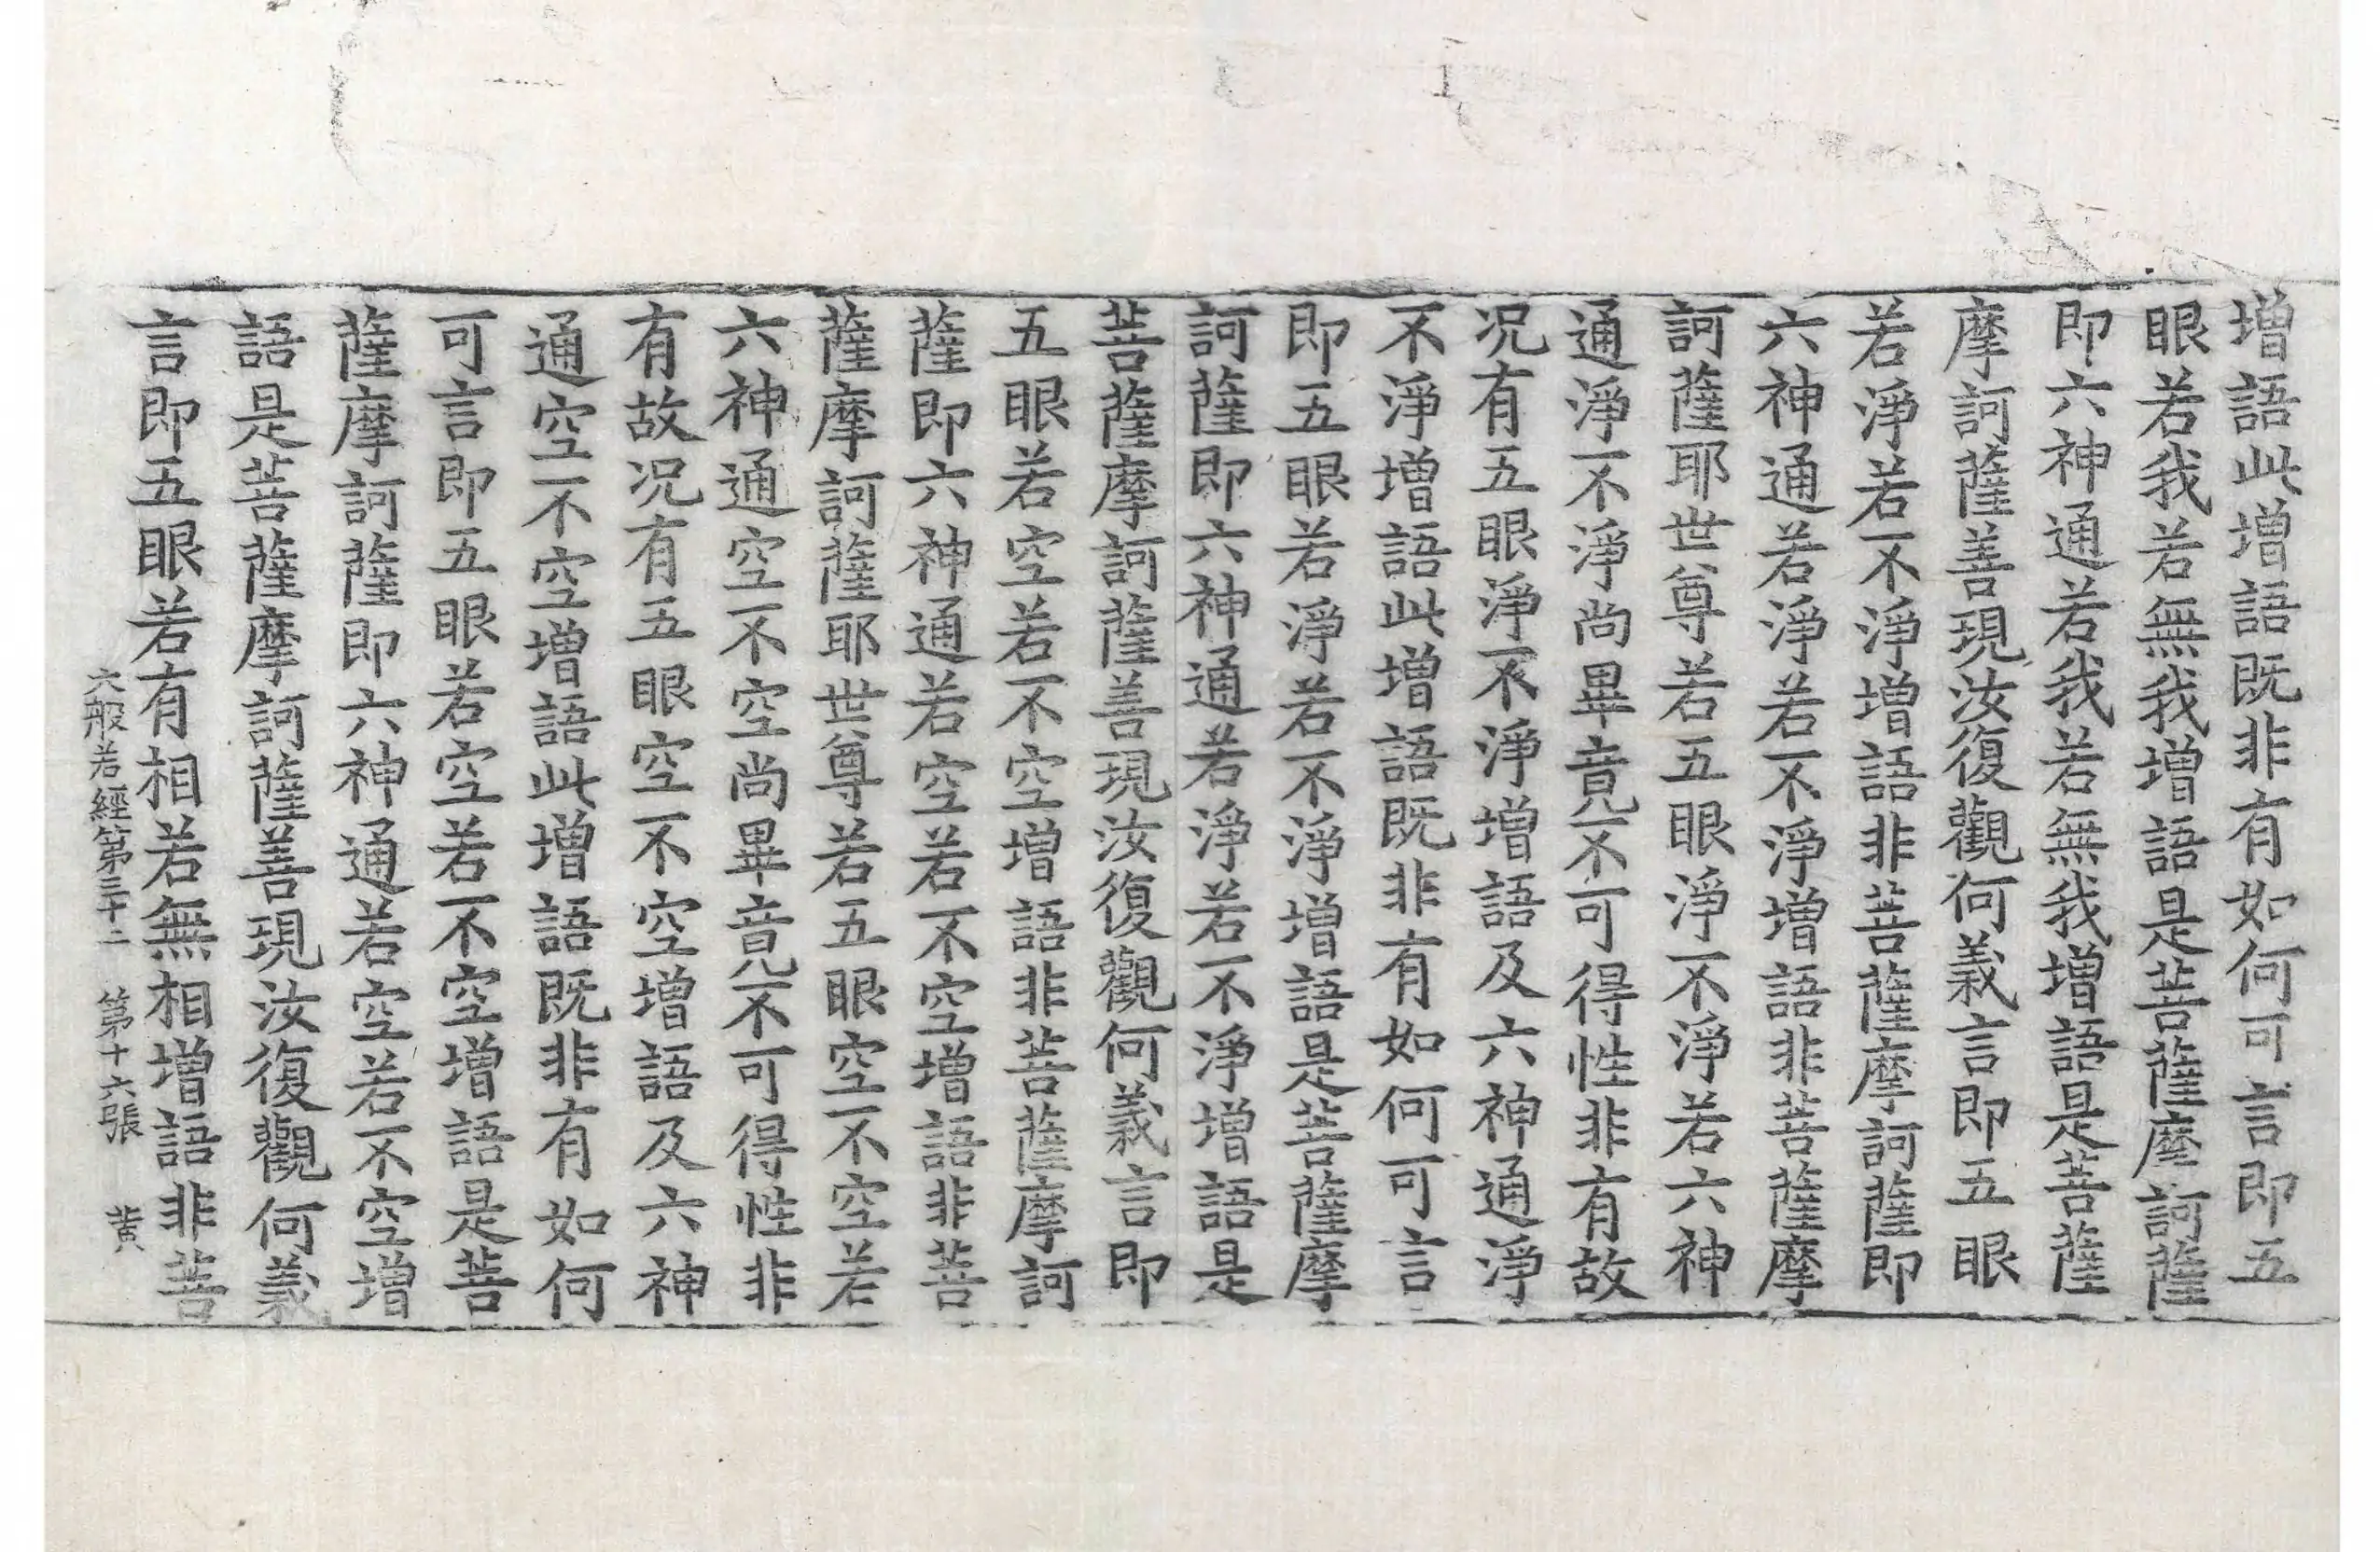 增語此增語既非有如何可言即五
眼若我若無我增語是菩薩摩訶薩
即六神通若我若無我增語是菩薩
摩訶薩善現汝復觀何義言即五眼
若淨若不淨增語非菩薩摩訶薩即
六神通若淨若不淨增語非菩薩摩
訶薩耶世尊若五眼淨不淨若六神
通淨不淨尚畢竟不可得性非有故
况有五眼淨不淨增語及六神通淨
不淨增語此增語既非有如何可言
即五眼若淨若不淨增語是菩薩摩
訶薩即六神通若淨若不淨增語是
菩薩摩訶薩善現汝復觀何義言即
五眼若空若不空增語非菩薩摩訶
薩即六神通若空若不空增語非菩
薩摩訶薩耶世尊若五眼空不空若
六神通空不空尚畢竟不可得性非
有故况有五眼空不空增語及六神
通空不空增語此增語既非有如何
可言即五眼若空若不空增語是菩
薩摩訶薩即六神通若空若不空增
語是菩薩摩訶薩善現汝復觀何義
言即五眼若有相若無相增語非菩
大般若經第三十二 第十六張 黄